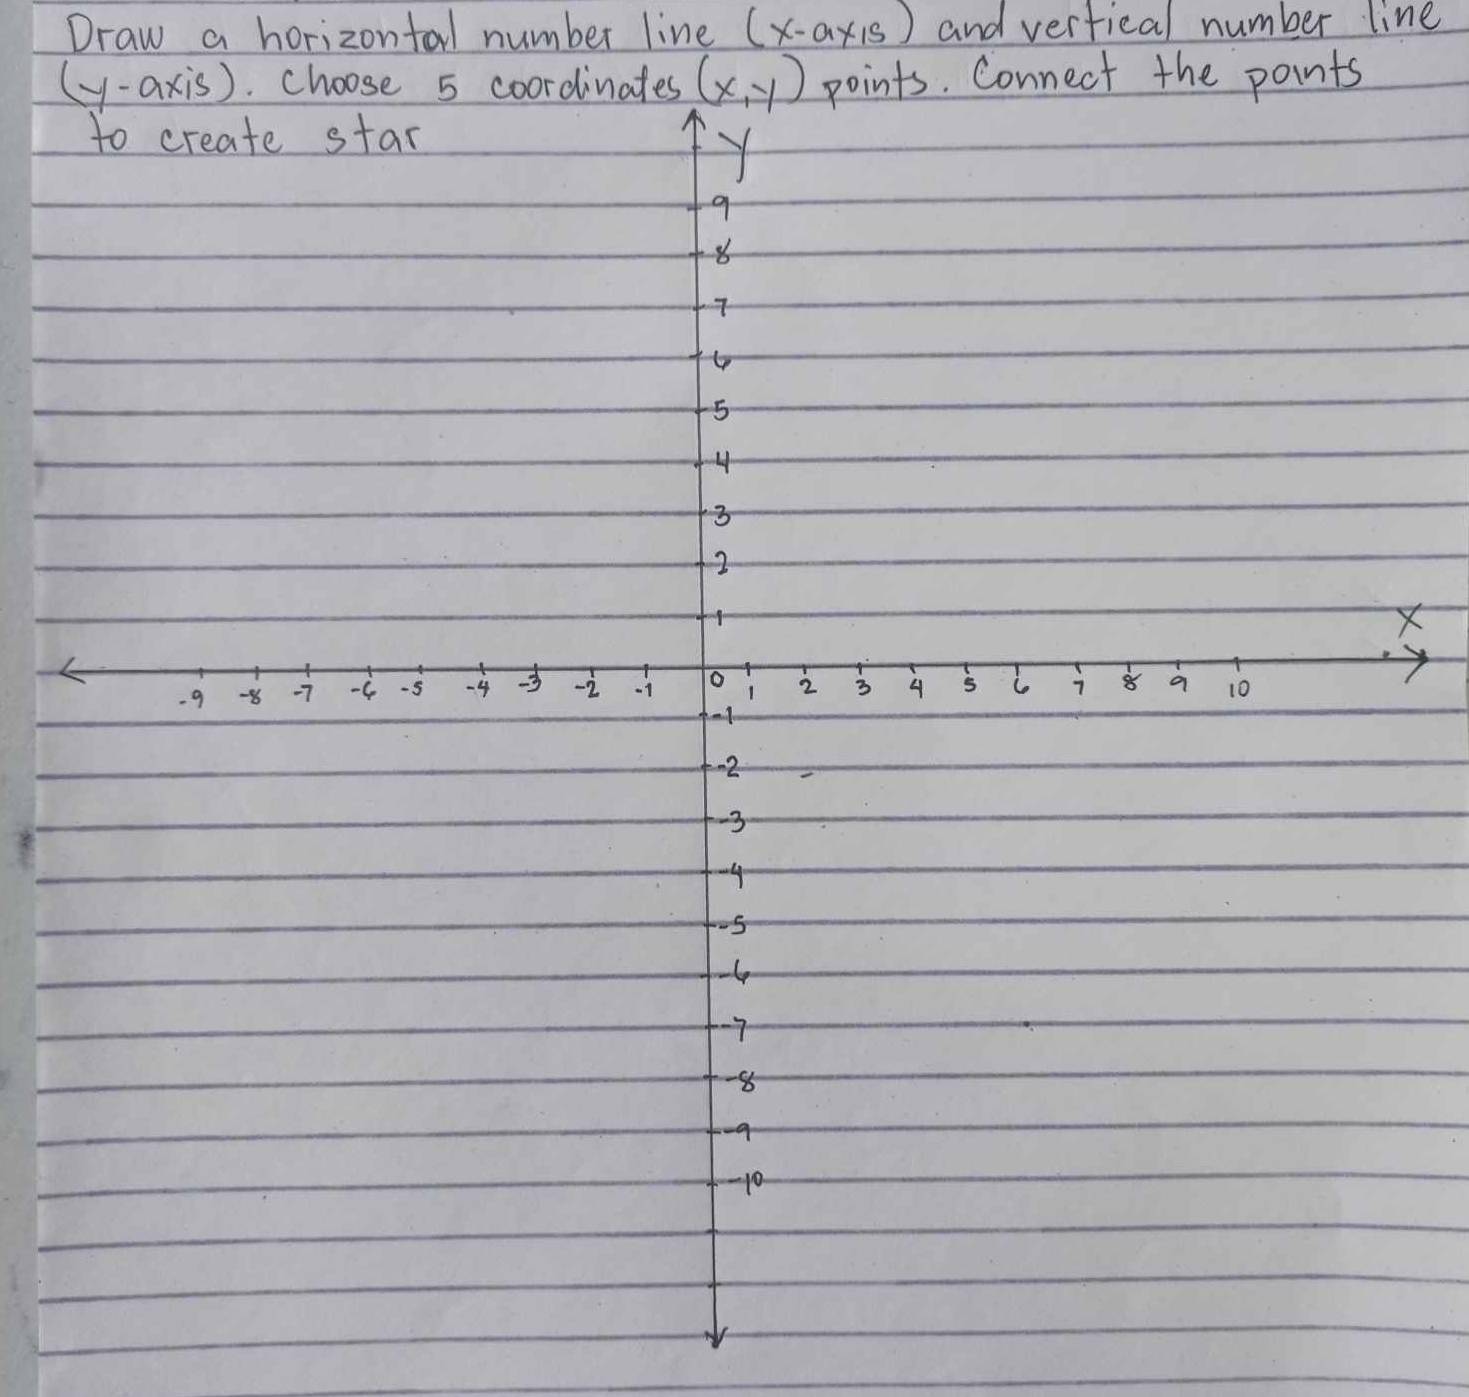 Draw a horizontal number line (x-axis) and vertical number line
(y-axis). Choose 5 coordinates (x,y) points. Connect the points
to create star
Y
9
8
7
6
5
4
3
2
1
X
-9 -8 -7 -6 -5 -4 -3 -2 -1 0 1 2 3 4 5 6 7 8 9 10
-1
-2
-3
-4
-5
-6
-7
-8
-9
-10